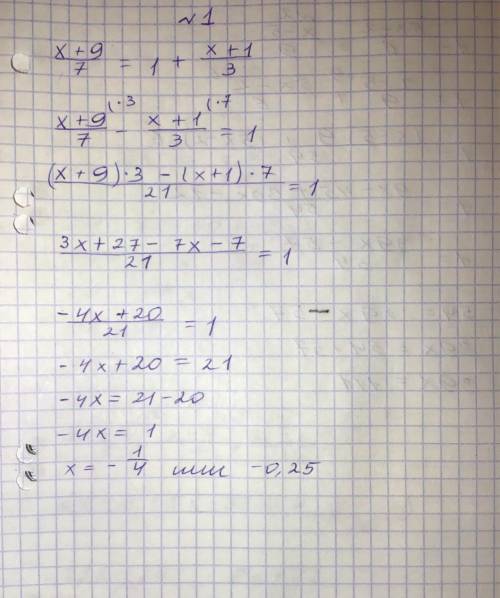 №1
(x+9)/7 = 1 + (x+1)/3
(x+9)/7 (·3 - (x+1)/3 (·7 = 1
((x+9)·3 - (x+1)·7)/21 = 1
(3x+27-7x-7)/21 = 1
(-4x+20)/21 = 1
-4x+20=21
-4x=21-20
-4x=1
x=-1/4 или -0,25